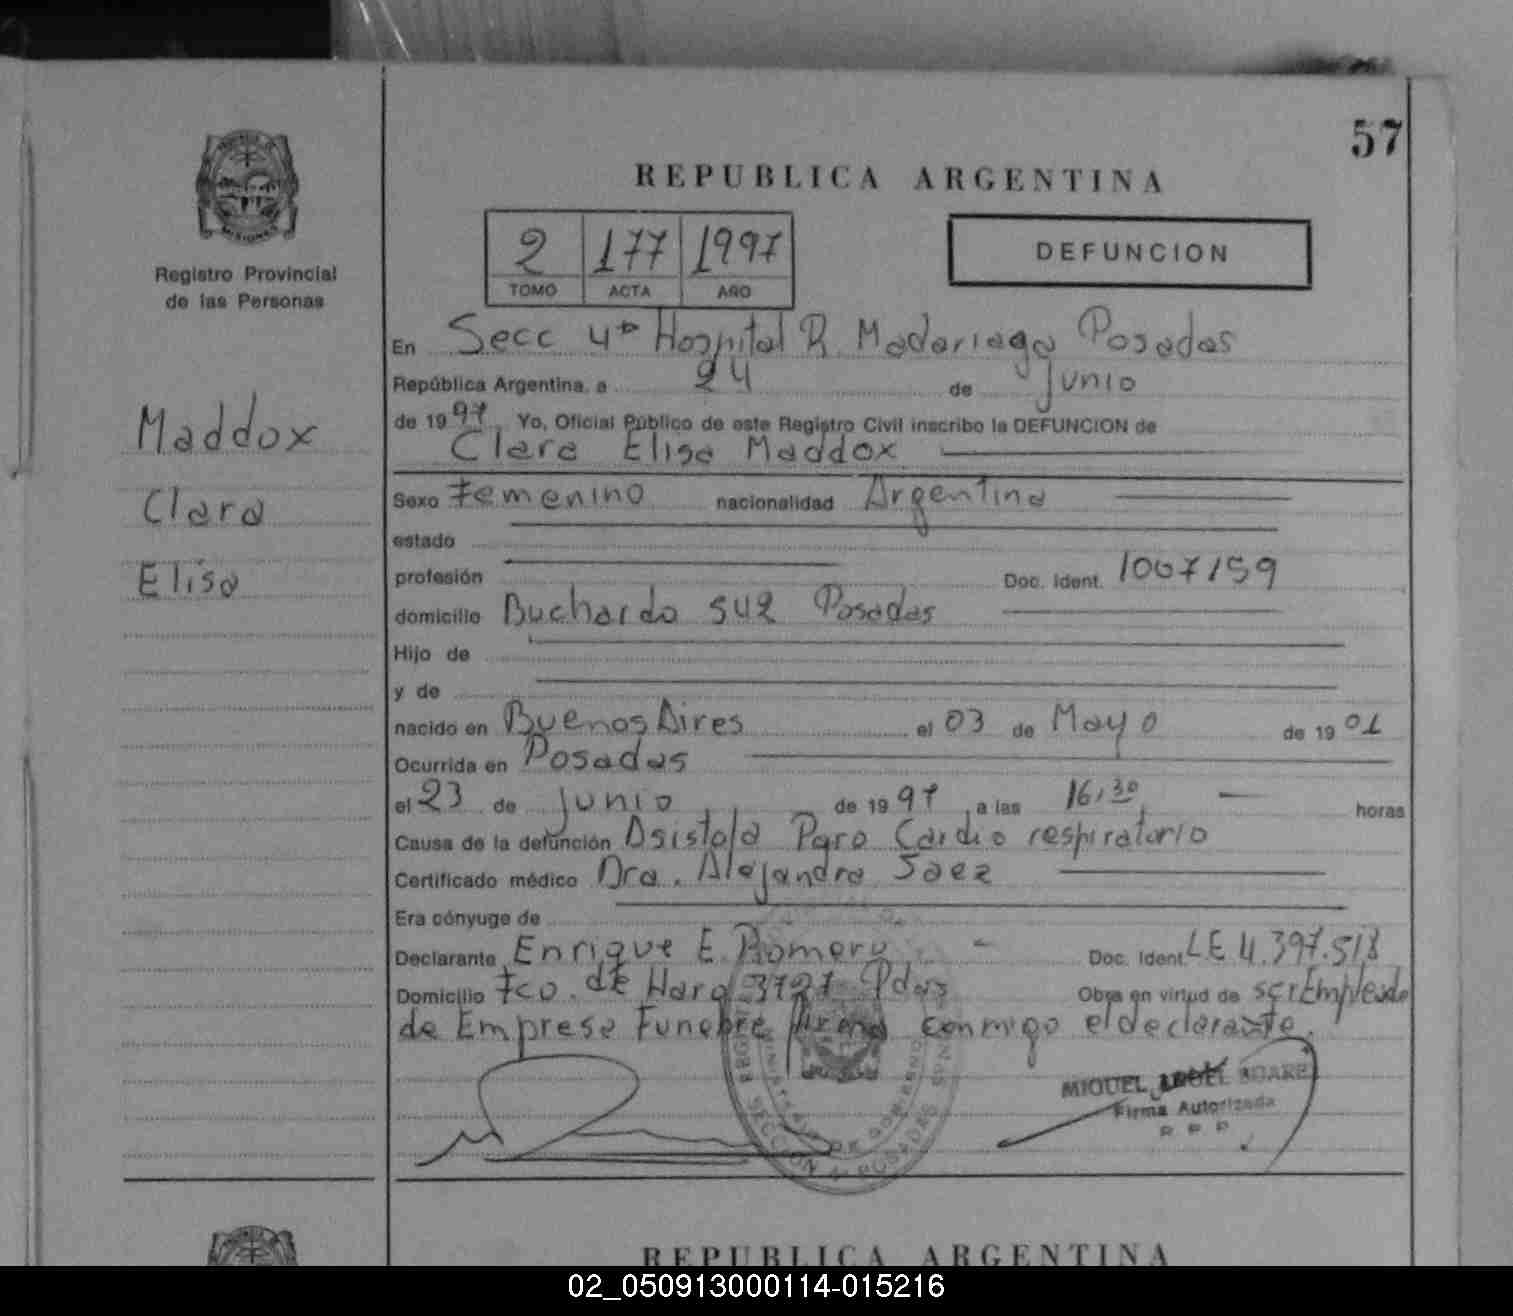 57
REPUBLICA ARGENTINA
MISIONES
Registro Provincial
de las Personas
2 177 1997
TOMO ACTA AÑO
DEFUNCION
En Secc 4ta Hospital R. Madariaga Posadas
República Argentina, a 24 de junio
de 1997 Yo, Oficial Público de este Registro Civil inscribo la DEFUNCION de
Clara Elisa Maddox
Maddox
Clara
Elisa
Sexo Femenino nacionalidad Argentina
estado
profesión Doc. Ident. 1007159
domicilio Buchardo 542 Posadas
Hijo de
y de
nacido en Buenos Aires el 03 de Mayo de 1901
Ocurrida en Posadas
el 23 de junio de 1997 a las 16,30 horas
Causa de la defunción Asistola Paro Cardio respiratorio
Certificado médico Dra. Alejandra Saez
Era cónyuge de
Declarante Enrique E. Romero Doc. Ident. LE 4.397.513
Domicilio Fco. de Haro 3727 Pdas Obra en virtud de ser Empleado
de Empresa Funebre Firma conmigo el declarante.
MIGUEL ANGEL SOARE
Firma Autorizada
R. P. P.
MINISTERIO DE GOBIERNO
SECCION 4a POSADAS
REPUBLICA ARGENTINA
02_050913000114-015216